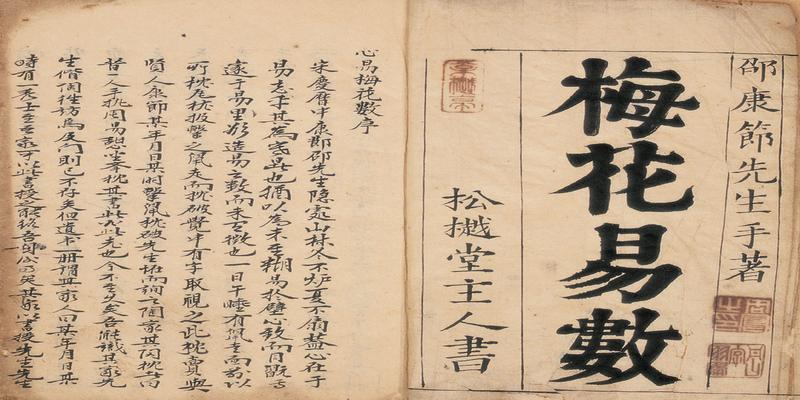 邵康節先生手著
梅花易數
松樾堂主人書
心易梅花數序
宋慶曆中康節邵先生隱處山林冬不炉夏不扇蓋心在于
易忘乎其為寒暑也猶以為未至糊易於壁心致而目翫焉
邃于易理欲造易之數而未有徵也一日午睡有鼠走而前以
所枕瓦枕投擊之鼠走而枕破覺中有字取視之此枕賣與
賢人康節某年月日某時擊鼠枕破先生怪而詢之陶家其陶枕者曰
昔一人手執周易憩坐舉枕其書此必此老也今不至久矣吾能識其家先
生偕陶往訪焉及門則已不存矣但遺書一册謂其家人曰某年月日某
時有一秀士至吾家可以此書授之能終吾身後事矣其家以書授先生先生